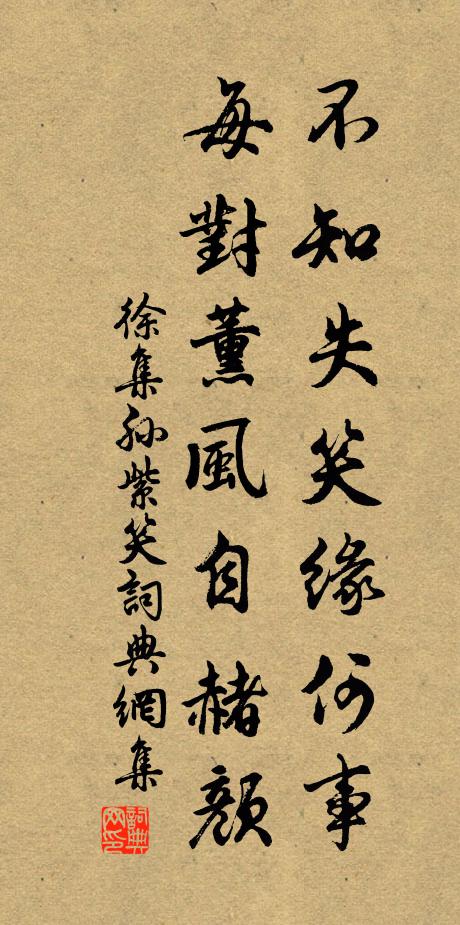 不知失笑緣何事
每對薰風自赭顏
徐集孫紫笑詞典網集
詞典网印